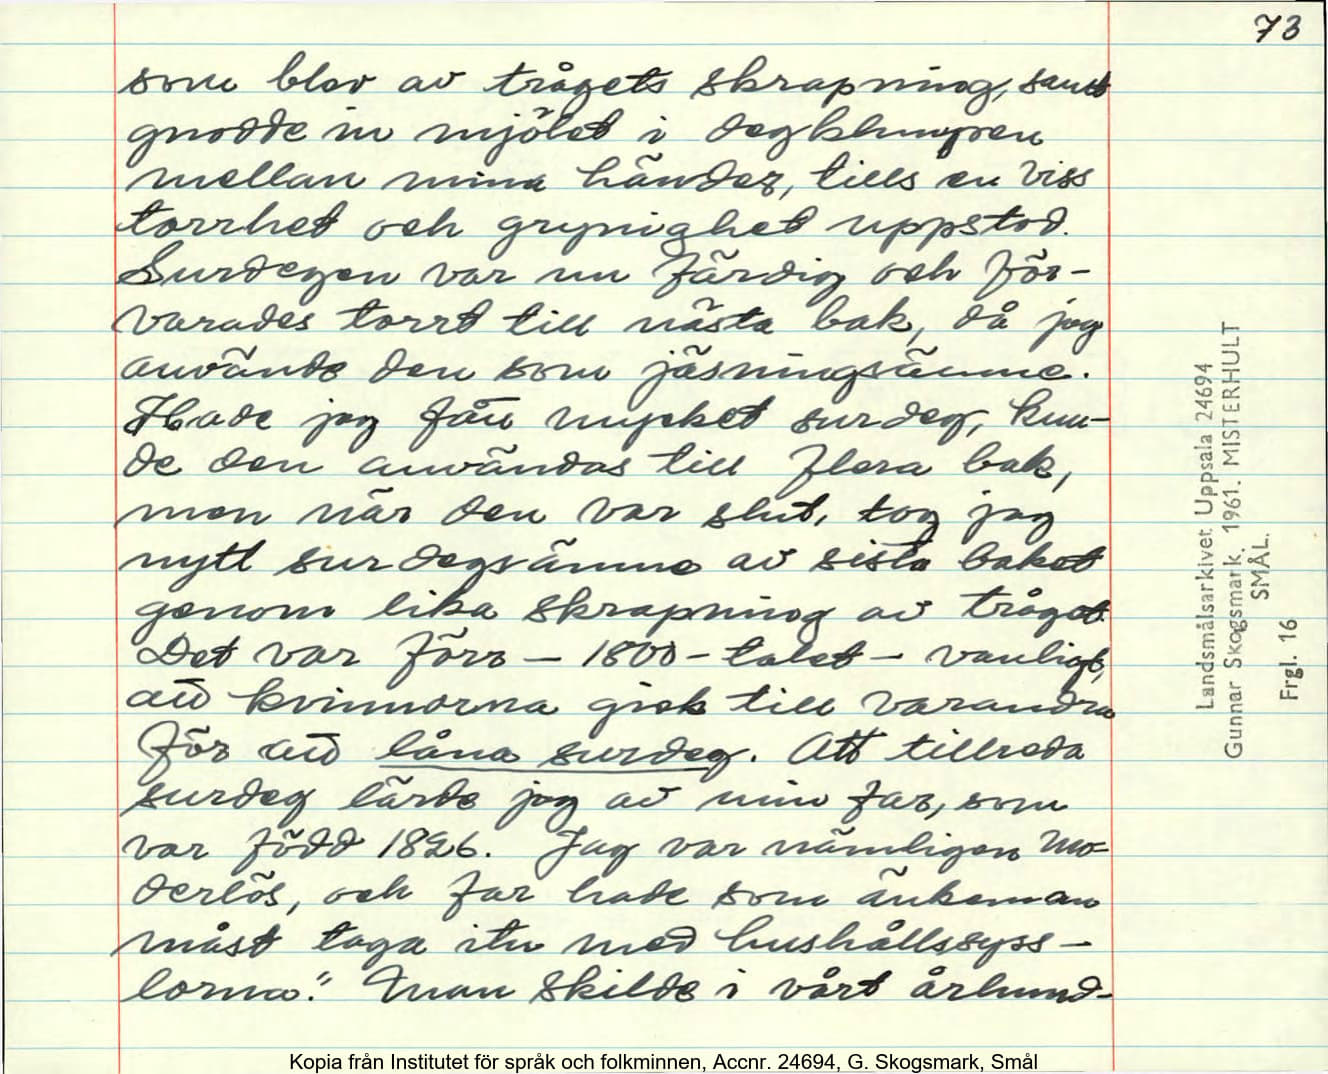 73
som blev av trågets skrapning, samt
gnodde in mjölet i degklumpen
mellan mina händer, tills en viss
torrhet och grynighet uppstod.
Surdegen var nu färdig och för-
varades torrt till nästa bak, då jag
använde den som jäsningsämne.
Hade jag fått mycket surdeg, kun-
de den användas till flera bak,
men när den var slut, tog jag
nytt surdegsämne av sista baket
genom lika skrapning av tråget.
Det var förr – 1800-talet – vanligt,
att kvinnorna gick till varandra
för att låna surdeg. Att tillreda
surdeg lärde jag av min far, som
var född 1826. Jag var nämligen mo-
derlös, och far hade som änkeman
måst taga itu med hushållssyss-
lorna." Man skilde i vårt århund-
Landsmålsarkivet Uppsala 24694
Gunnar Skogsmark. 1961. MISTERHULT
SMÅL.
Frgl. 16
Kopia från Institutet för språk och folkminnen, Accnr. 24694, G. Skogsmark, Smål